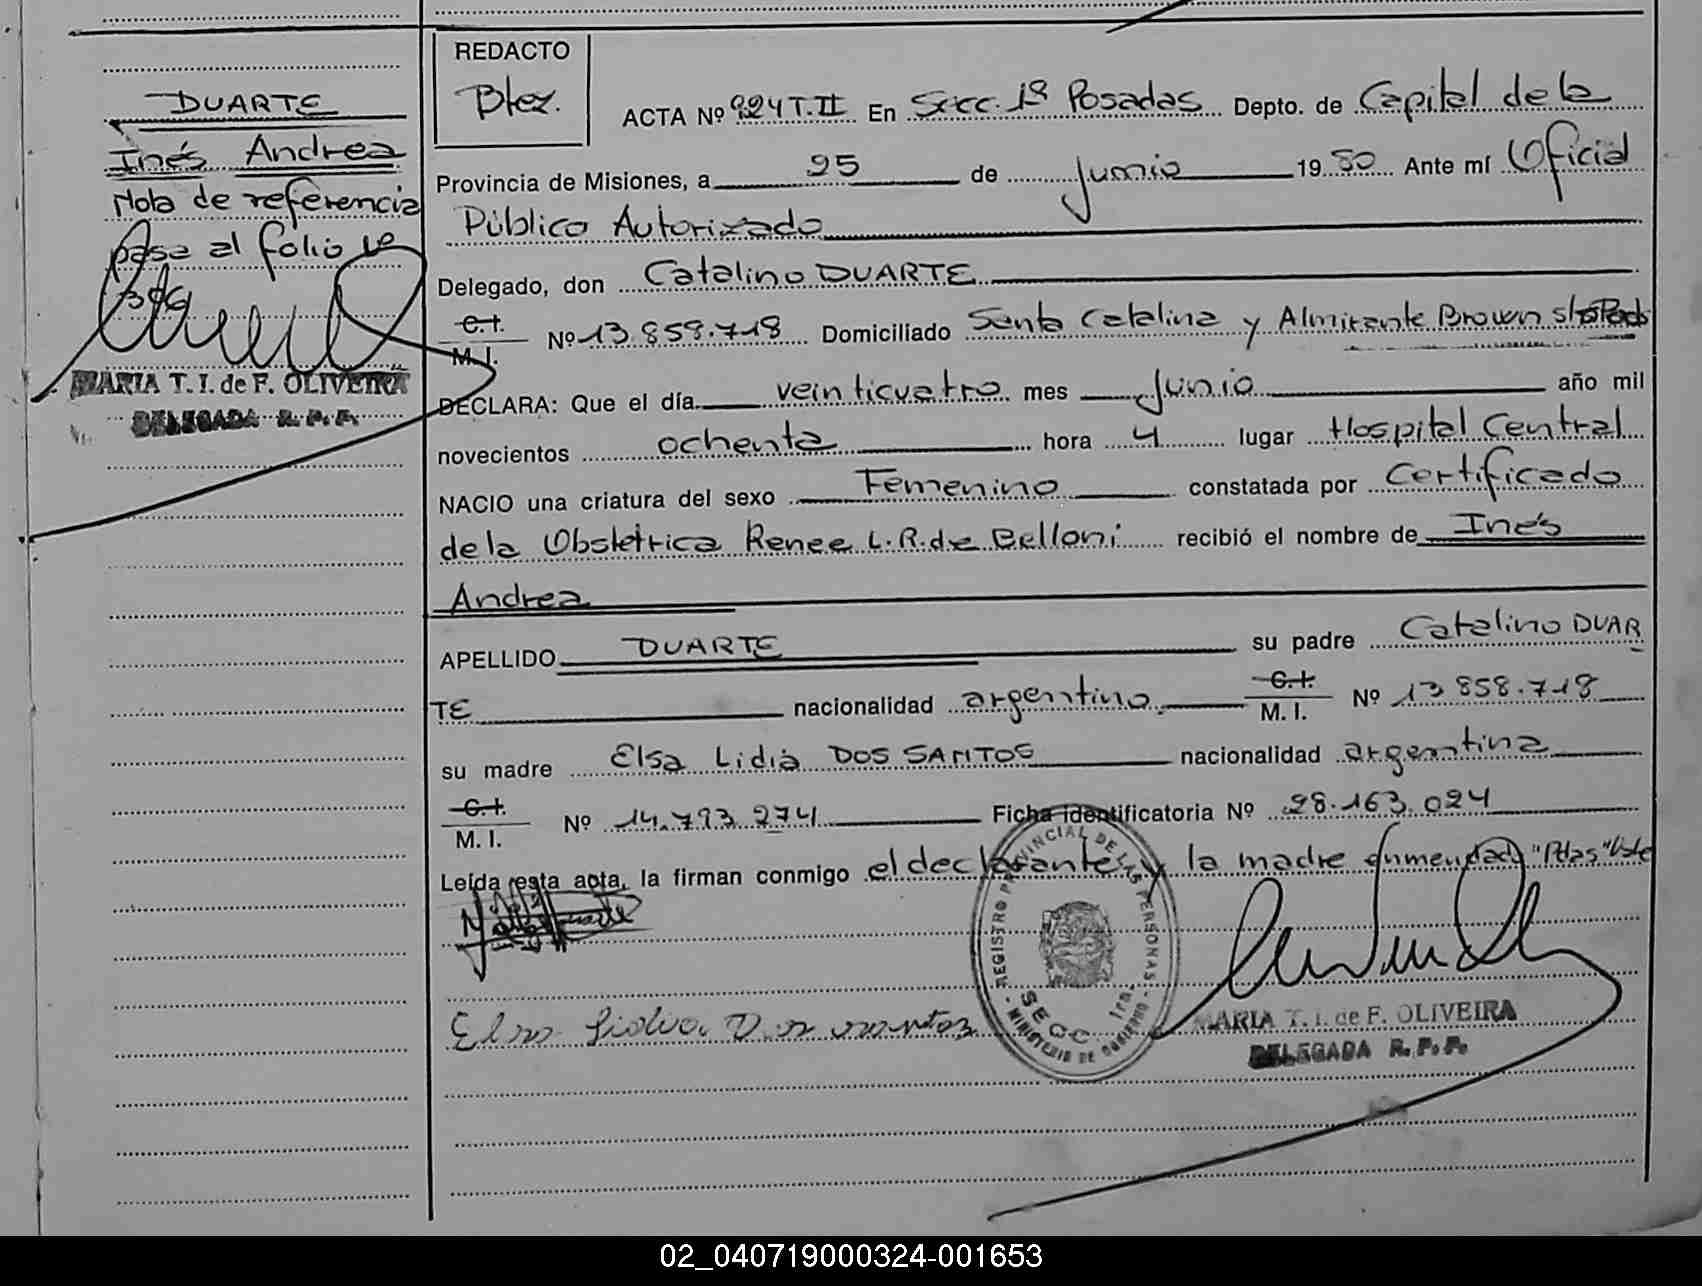 REDACTO
Btez.
ACTA Nº 924 T.II En Secc. 1ª Posadas Depto. de Capital de la
Provincia de Misiones, a 25 de Junio 1980 Ante mí Oficial
Público Autorizado
Delegado, don Catalino DUARTE
C.I. M.I. Nº 13.858.718 Domiciliado Santa Catalina y Almirante Brown
DECLARA: Que el día veinticuatro mes Junio año mil
novecientos ochenta hora 4 lugar Hospital Central
NACIO una criatura del sexo Femenino constatada por Certificado
de la Obstetrica Renee L. R. de Belloni recibió el nombre de Inés
Andrea
APELLIDO DUARTE su padre Catalino DUAR
TE nacionalidad argentino C.I. M.I. Nº 13.858.718
su madre Elsa Lidia DOS SANTOS nacionalidad argentina
C.I. M.I. Nº 14.793.274 Ficha identificatoria Nº 28.163.024
Leída esta acta, la firman conmigo el declarante y la madre enmendado "Pdas" Vale
Elsa Lidia Dos santos
REGISTRO PROVINCIAL DE LAS PERSONAS
SECC. 1ra.
MINISTERIO DE GOBIERNO
MARIA T. I. de F. OLIVEIRA
DELEGADA R. P. P.
DUARTE
Inés Andrea
Nota de referencia
pasa al folio
396
MARIA T. I. de F. OLIVEIRA
DELEGADA R. P. P.
02_040719000324-001653